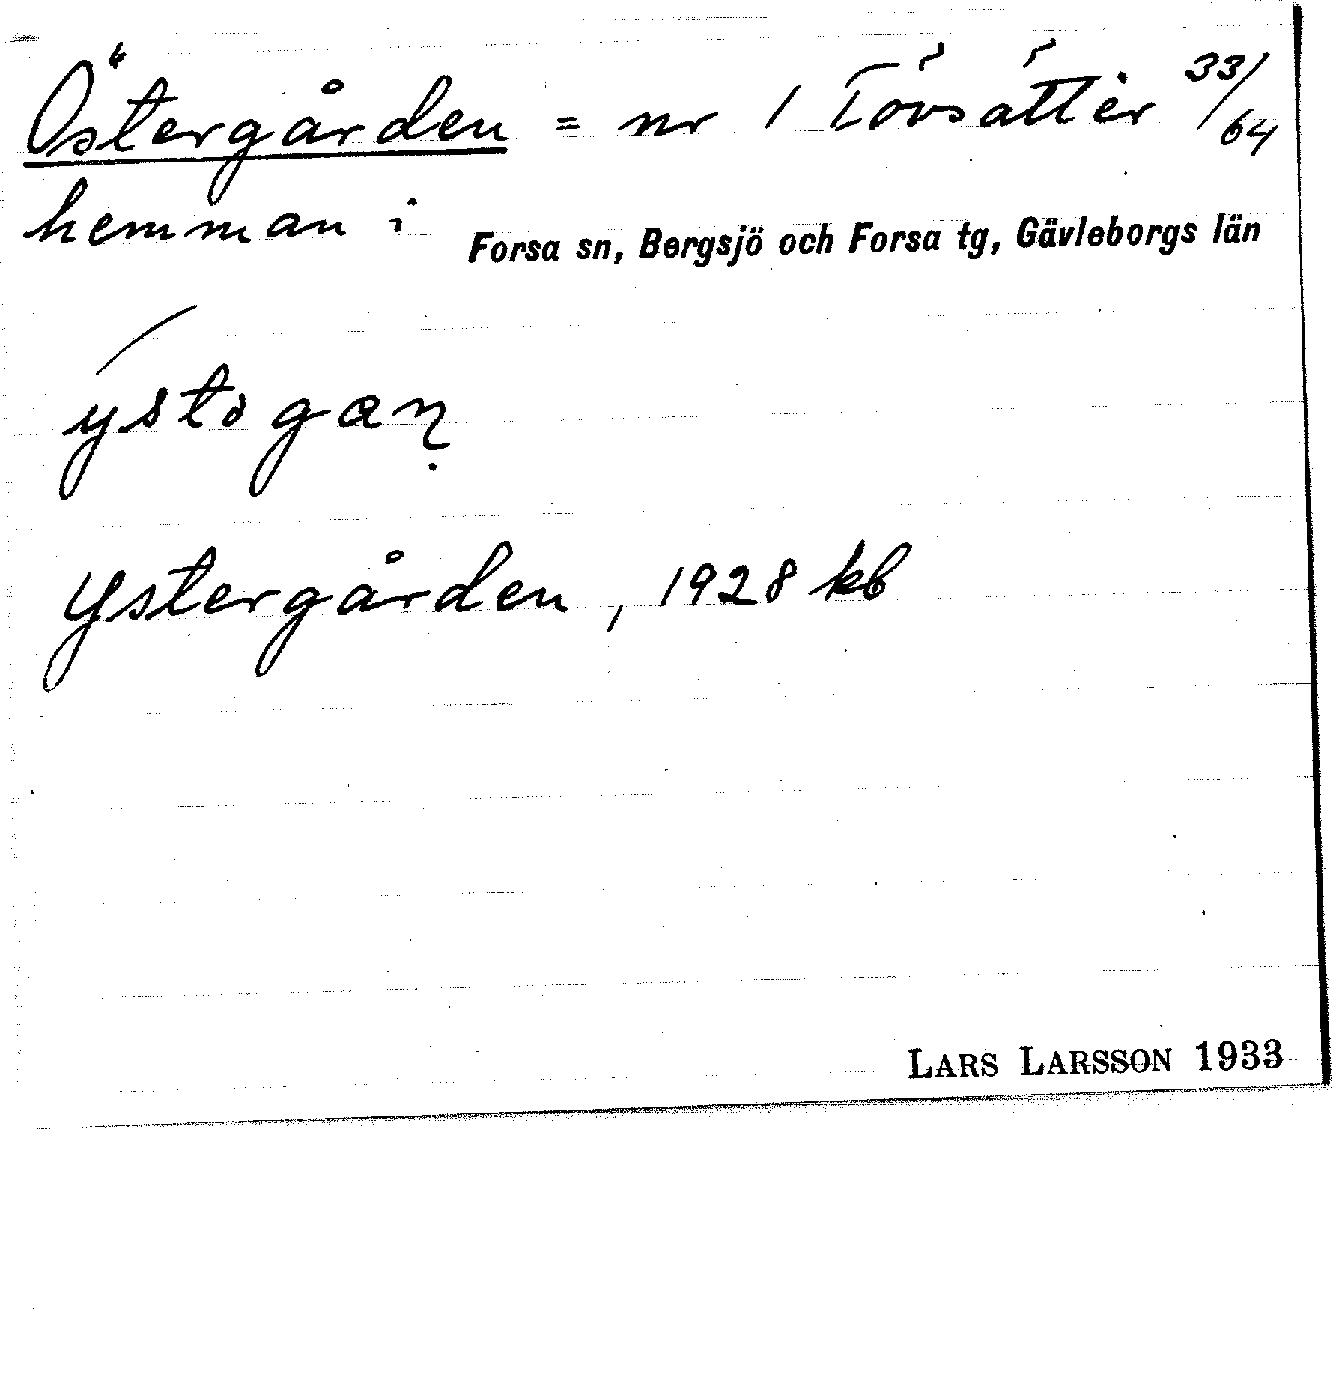 Östergården = nr 1 Tövsätter 33/64
hemman i Forsa sn, Bergsjö och Forsa tg, Gävleborgs län
Ystergården, 1928 kb
LARS LARSSON 1933